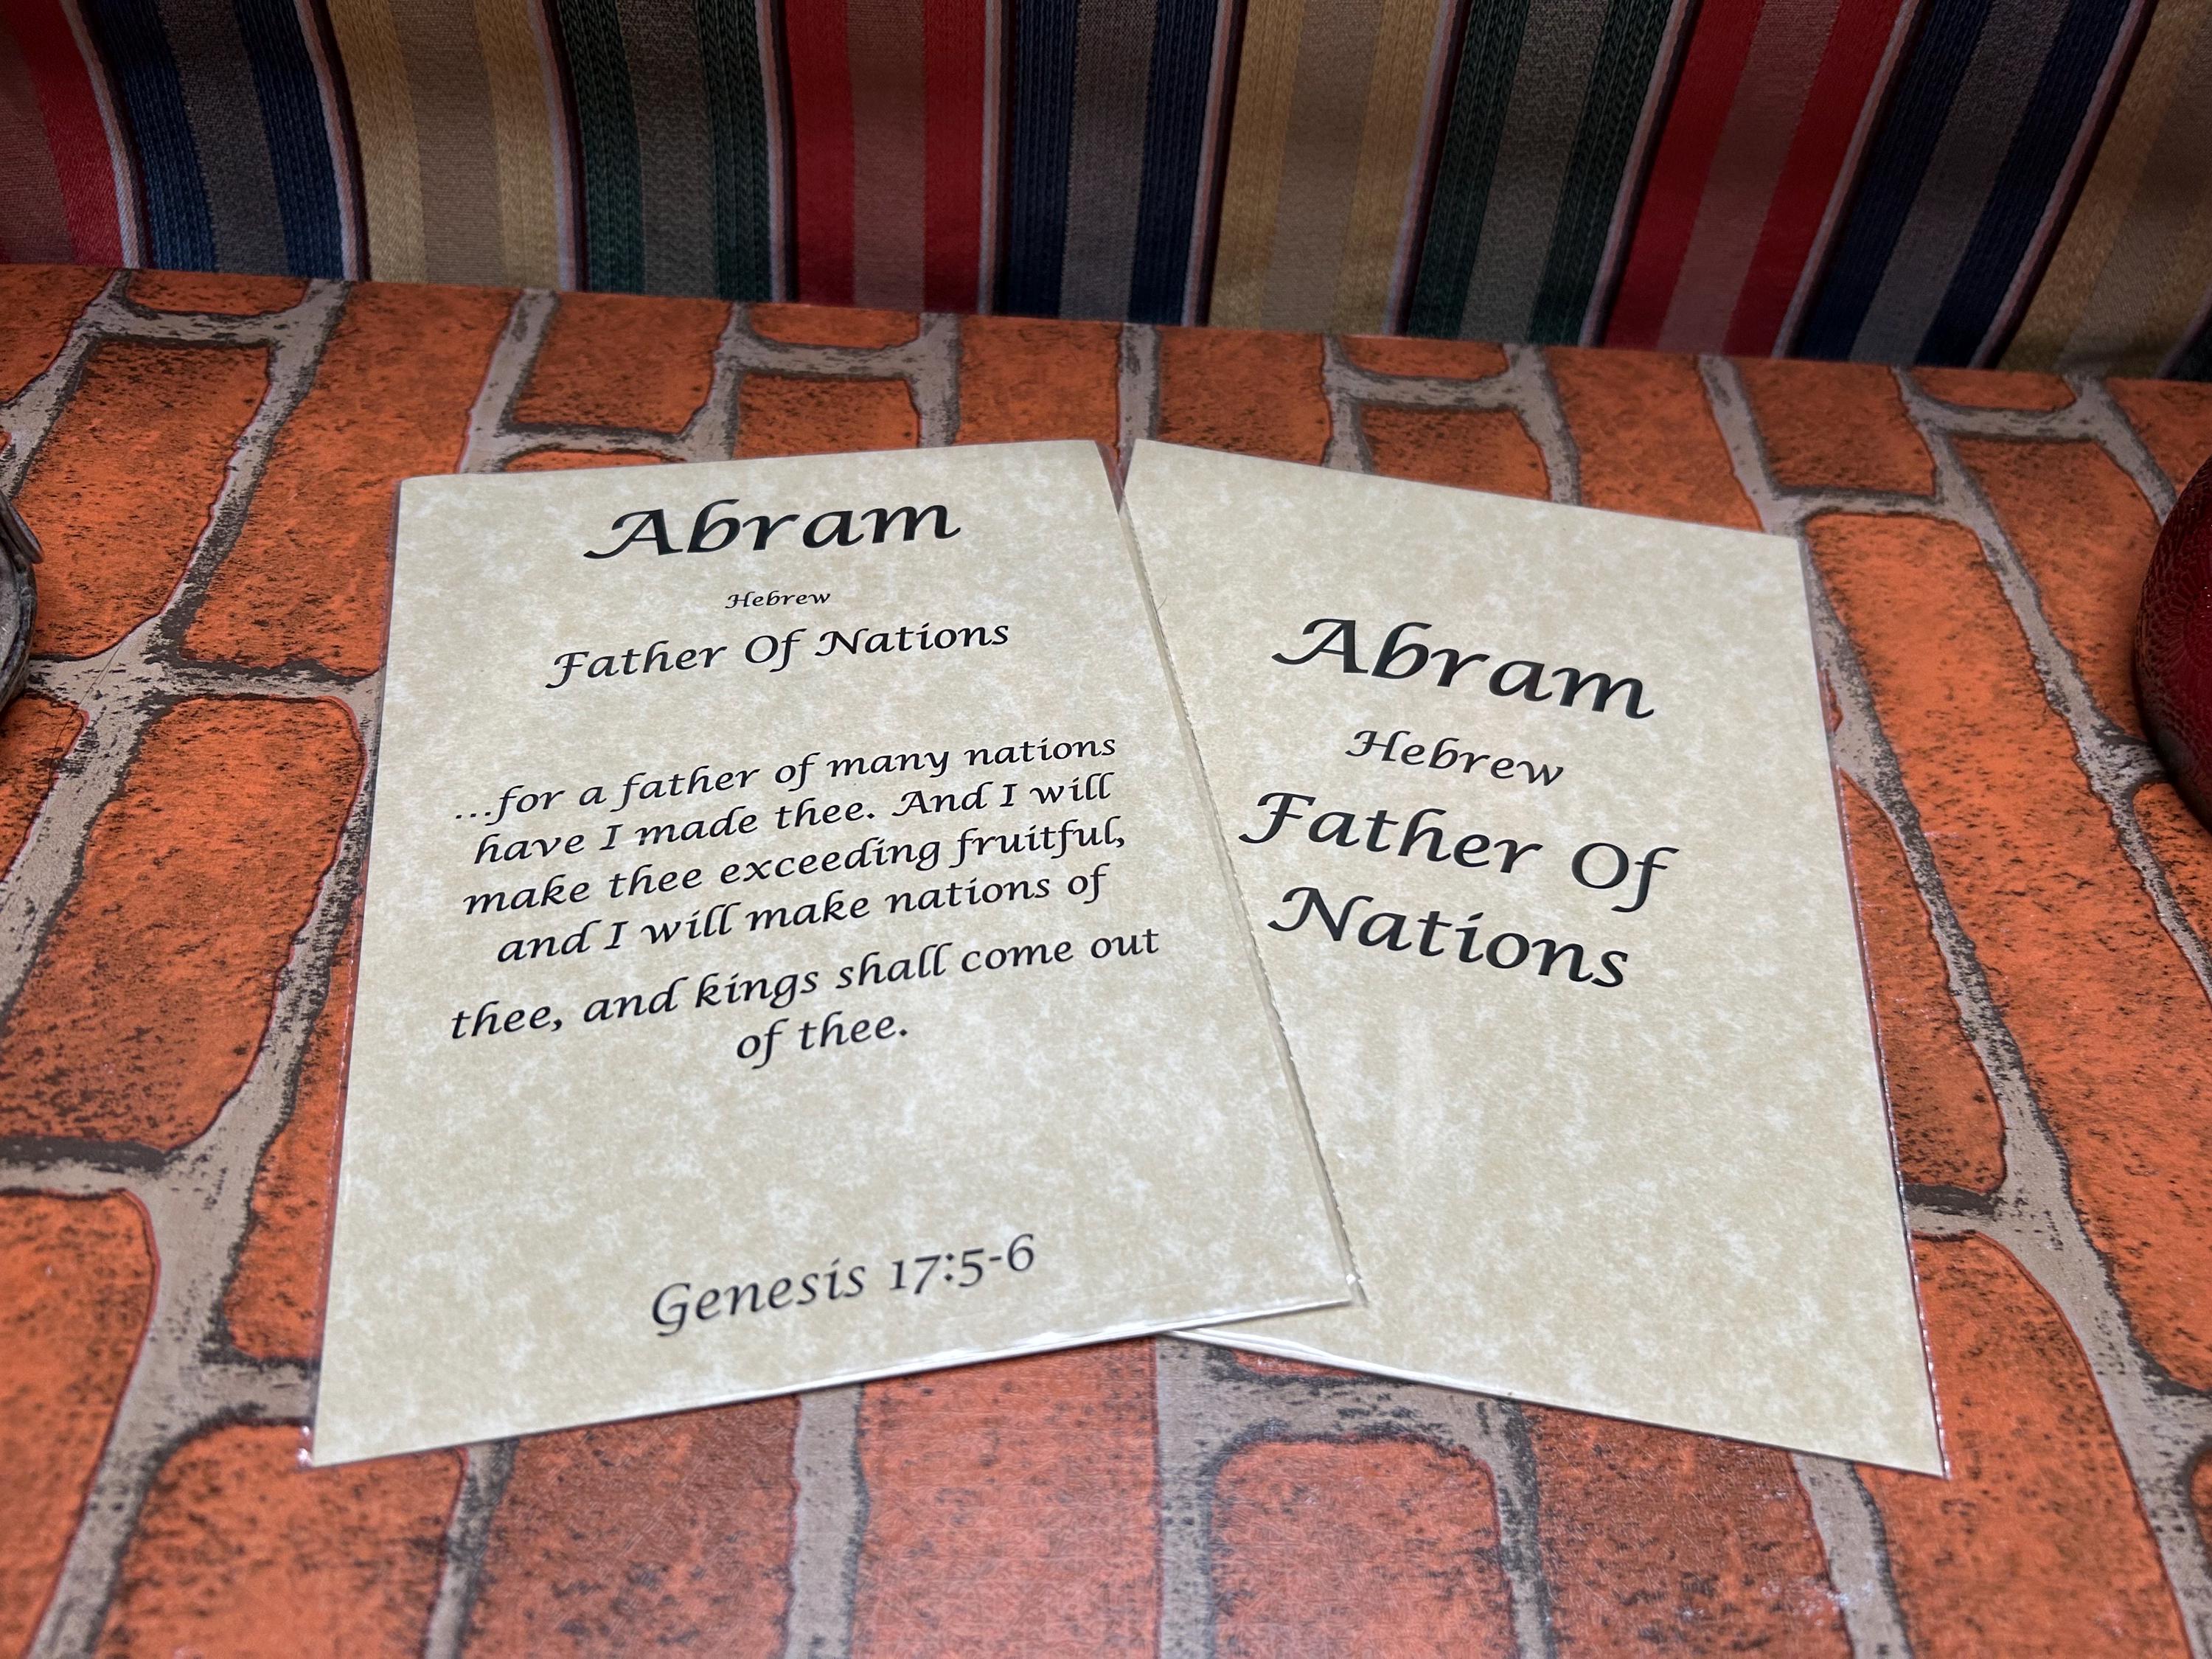 Abram
Hebrew
Father Of Nations
...for a father of many nations
have I made thee. And I will
make thee exceeding fruitful,
and I will make nations of
thee, and kings shall come out
of thee.
Genesis 17:5-6
Abram
Hebrew
Father Of
Nations